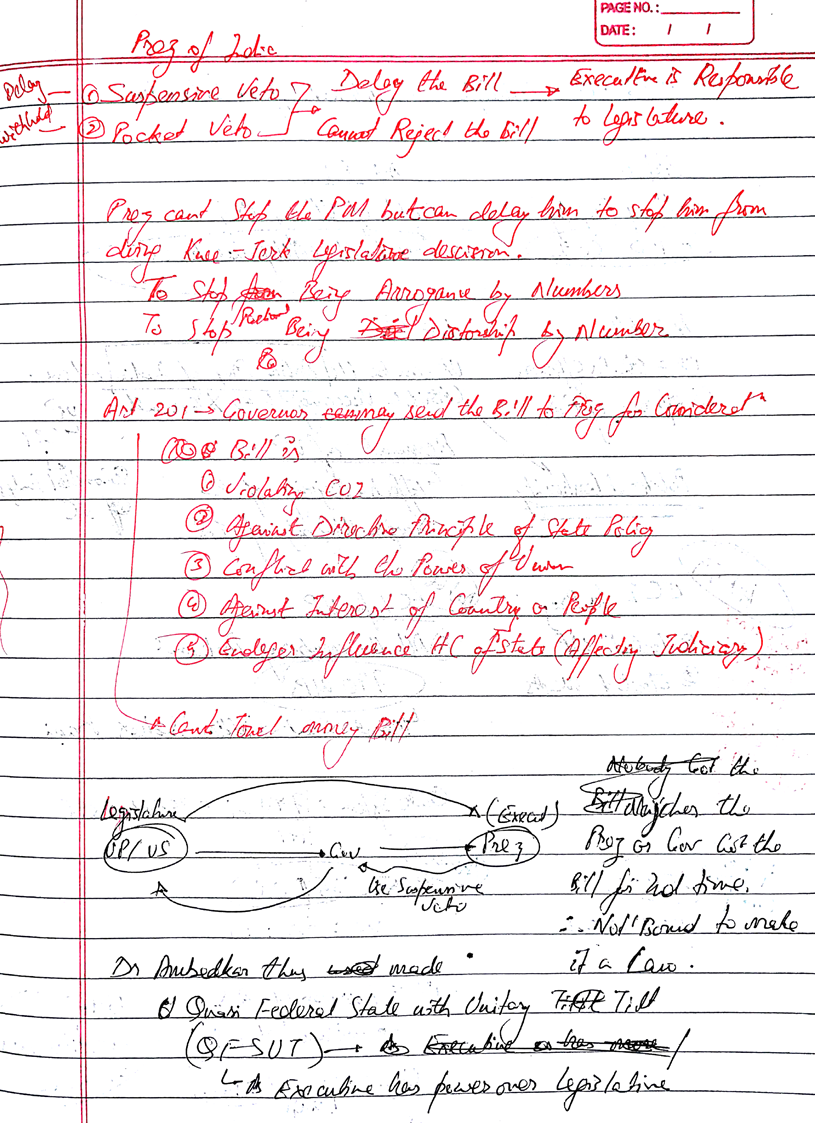 PAGE NO.:
DATE: / /
Prez of India
Delay — ① Suspensive Veto Delay the Bill → Executive is Responsible
withhold — ② Pocket Veto Cannot Reject the Bill to Legislature.
Prez cant Stop the PM but can delay him to stop him from
doing Knee-Jerk legislative descision.
To Stop Being Arrogance by Numbers
To Stop Being Dictorship by Number
Art 201 → Governor may send the Bill to Prez for Considerat^n
Bill is
① Violating COI
② Against Directive Principle of State Policy
③ Conflict with the Power of Union
④ Against Interest of Country or People
⑤ Endeger Influence HC of State (Affecting Judiciary)
→ Cant Touch money Bill
Legislature (Execut)
VP/VS → Gov → Prez
Use Suspensive
Veto
Nobody Got the
Bill Neither the
Prez or Gov Got the
Bill for 2nd time.
∴ Not Bound to make
it a Law.
Dr Ambedkar thus used made
Quasi Federal State with Unitary Tilt
(QFSUT) → Executive has more
↳ Executive has power over legislative